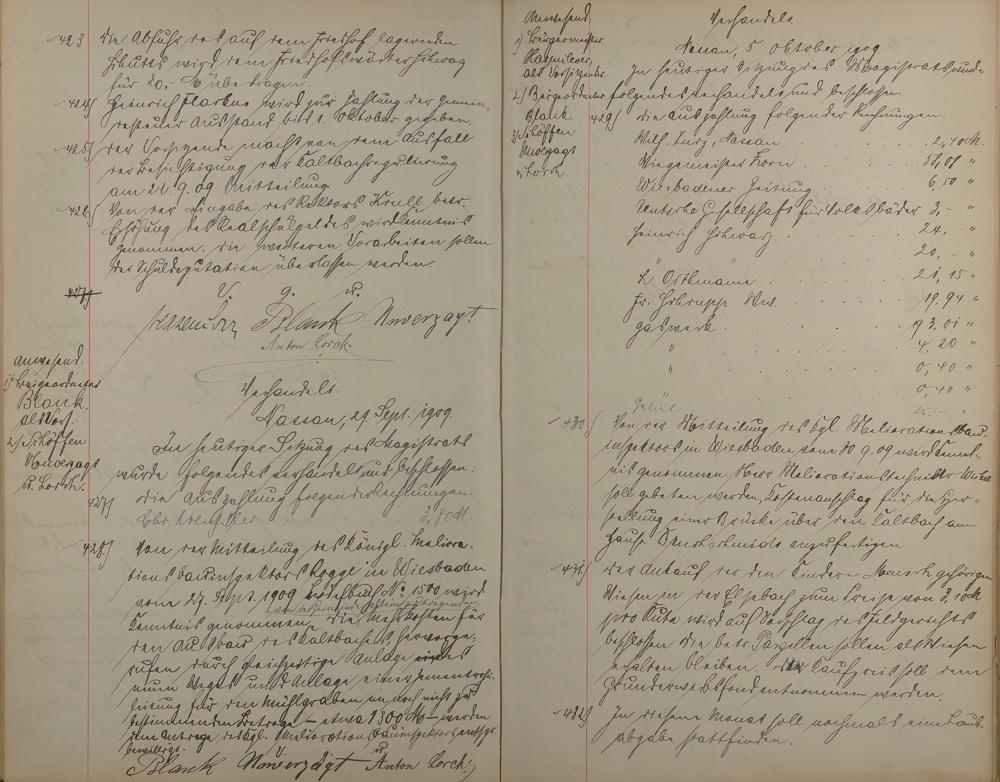 423 die Abfuhr des auf dem Friedhof lagernden
Schuttes wird dem Friedhofswärter Schwarz
für 20,- M übertragen.
424) Heinrich wird zur Zahlung der
Ausstand bis 1. Oktober gegeben.
425) der Vorsitzende macht von dem Ausfall
der Besichtigung der Kaltbachregulierung
am 21.9.09 Mitteilung
426) Von der Eingabe des Rektors Krull betr.
Erhöhung des Realschulgeldes wird Kenntnis
genommen. die weiteren Vorarbeiten sollen
der Schuldeputation überlassen werden.
427)
V. g. u.
Hasenclever Blank Unverzagt
Anton Lorch.
Anwesend:
1) Beigeordneter
Blank,
als Vors.
2) Schöffen
Unverzagt
u. Lorch.
Verhandelt.
Nassau, 29. Sept. 1909.
In heutiger Sitzung des Magistrats
wurde folgendes verhandelt und beschlossen:
427) die Auszahlung folgender Rechnungen:
Chr. 3,70 M
428) Von der Mitteilung des Königl. Meliora-
tionsbauinspektors Rogge in Wiesbaden
vom 27. Sept. 1909 No 1500 wird
Kenntnis genommen. die Mehrkosten für
den Ausbau des Kaltbaches, hervorge-
rufen durch gleichzeitige Anlage eines
neuen Weges und Anlage einer
leitung für den Mühlgraben in noch nicht zu
bestimmendem Betrage – etwa 1300 M – werden
dem Antrage des Kgl. Meliorationsbauinspektors entspr.
bewilligt.
V. u.
Blank Unverzagt Anton Lorch.
Anwesend:
1) Bürgermeister
Hasenclever,
als Vorsitzender.
2) Beigeordneter
Blank.
3) Schöffen
Unverzagt
u. Lorch.
Verhandelt
Nassau, 5 Oktober 1909
In heutiger Sitzung des Magistrats wurde
folgendes verhandelt und beschlossen.
429) die Auszahlung folgender Rechnungen:
Wilh. Kurz, Nassau 2,40 M
Wiegemeister Korn 58,01 "
Wiesbadener Zeitung 6,50 "
Deutsche Gesellschaft für Volksbäder 3,- "
Heinrich Schwarz 24,- "
20,- "
L. Ortmann 21,15 "
Fr. Wwe. 19,94 "
Gaswerk 93.01 "
" 4,20 "
" 0,40 "
0,40 "
25,- "
430) Von der Mitteilung des Kgl. Meliorationsbau-
inspektors in Wiesbaden vom 30.9.09 wird Kennt-
nis genommen. Herr Meliorationstechniker
soll gebeten werden, Kostenanschlag für die Her-
stellung einer Brücke über den Kaltbach am
Hause anzufertigen.
431) der Ankauf der den Kindern gehörigen
Wiesen in der Elsebach zum Preise von 3,10 M
pro Rute wird auf Vorschlag des Feldgerichts
beschlossen. die betr. Parzellen sollen als Wiesen
erhalten bleiben. der Kaufpreis soll dem
Grunderwerbsfond entnommen werden.
432) In diesem Monat soll nochmals eine Laub-
abgabe stattfinden.